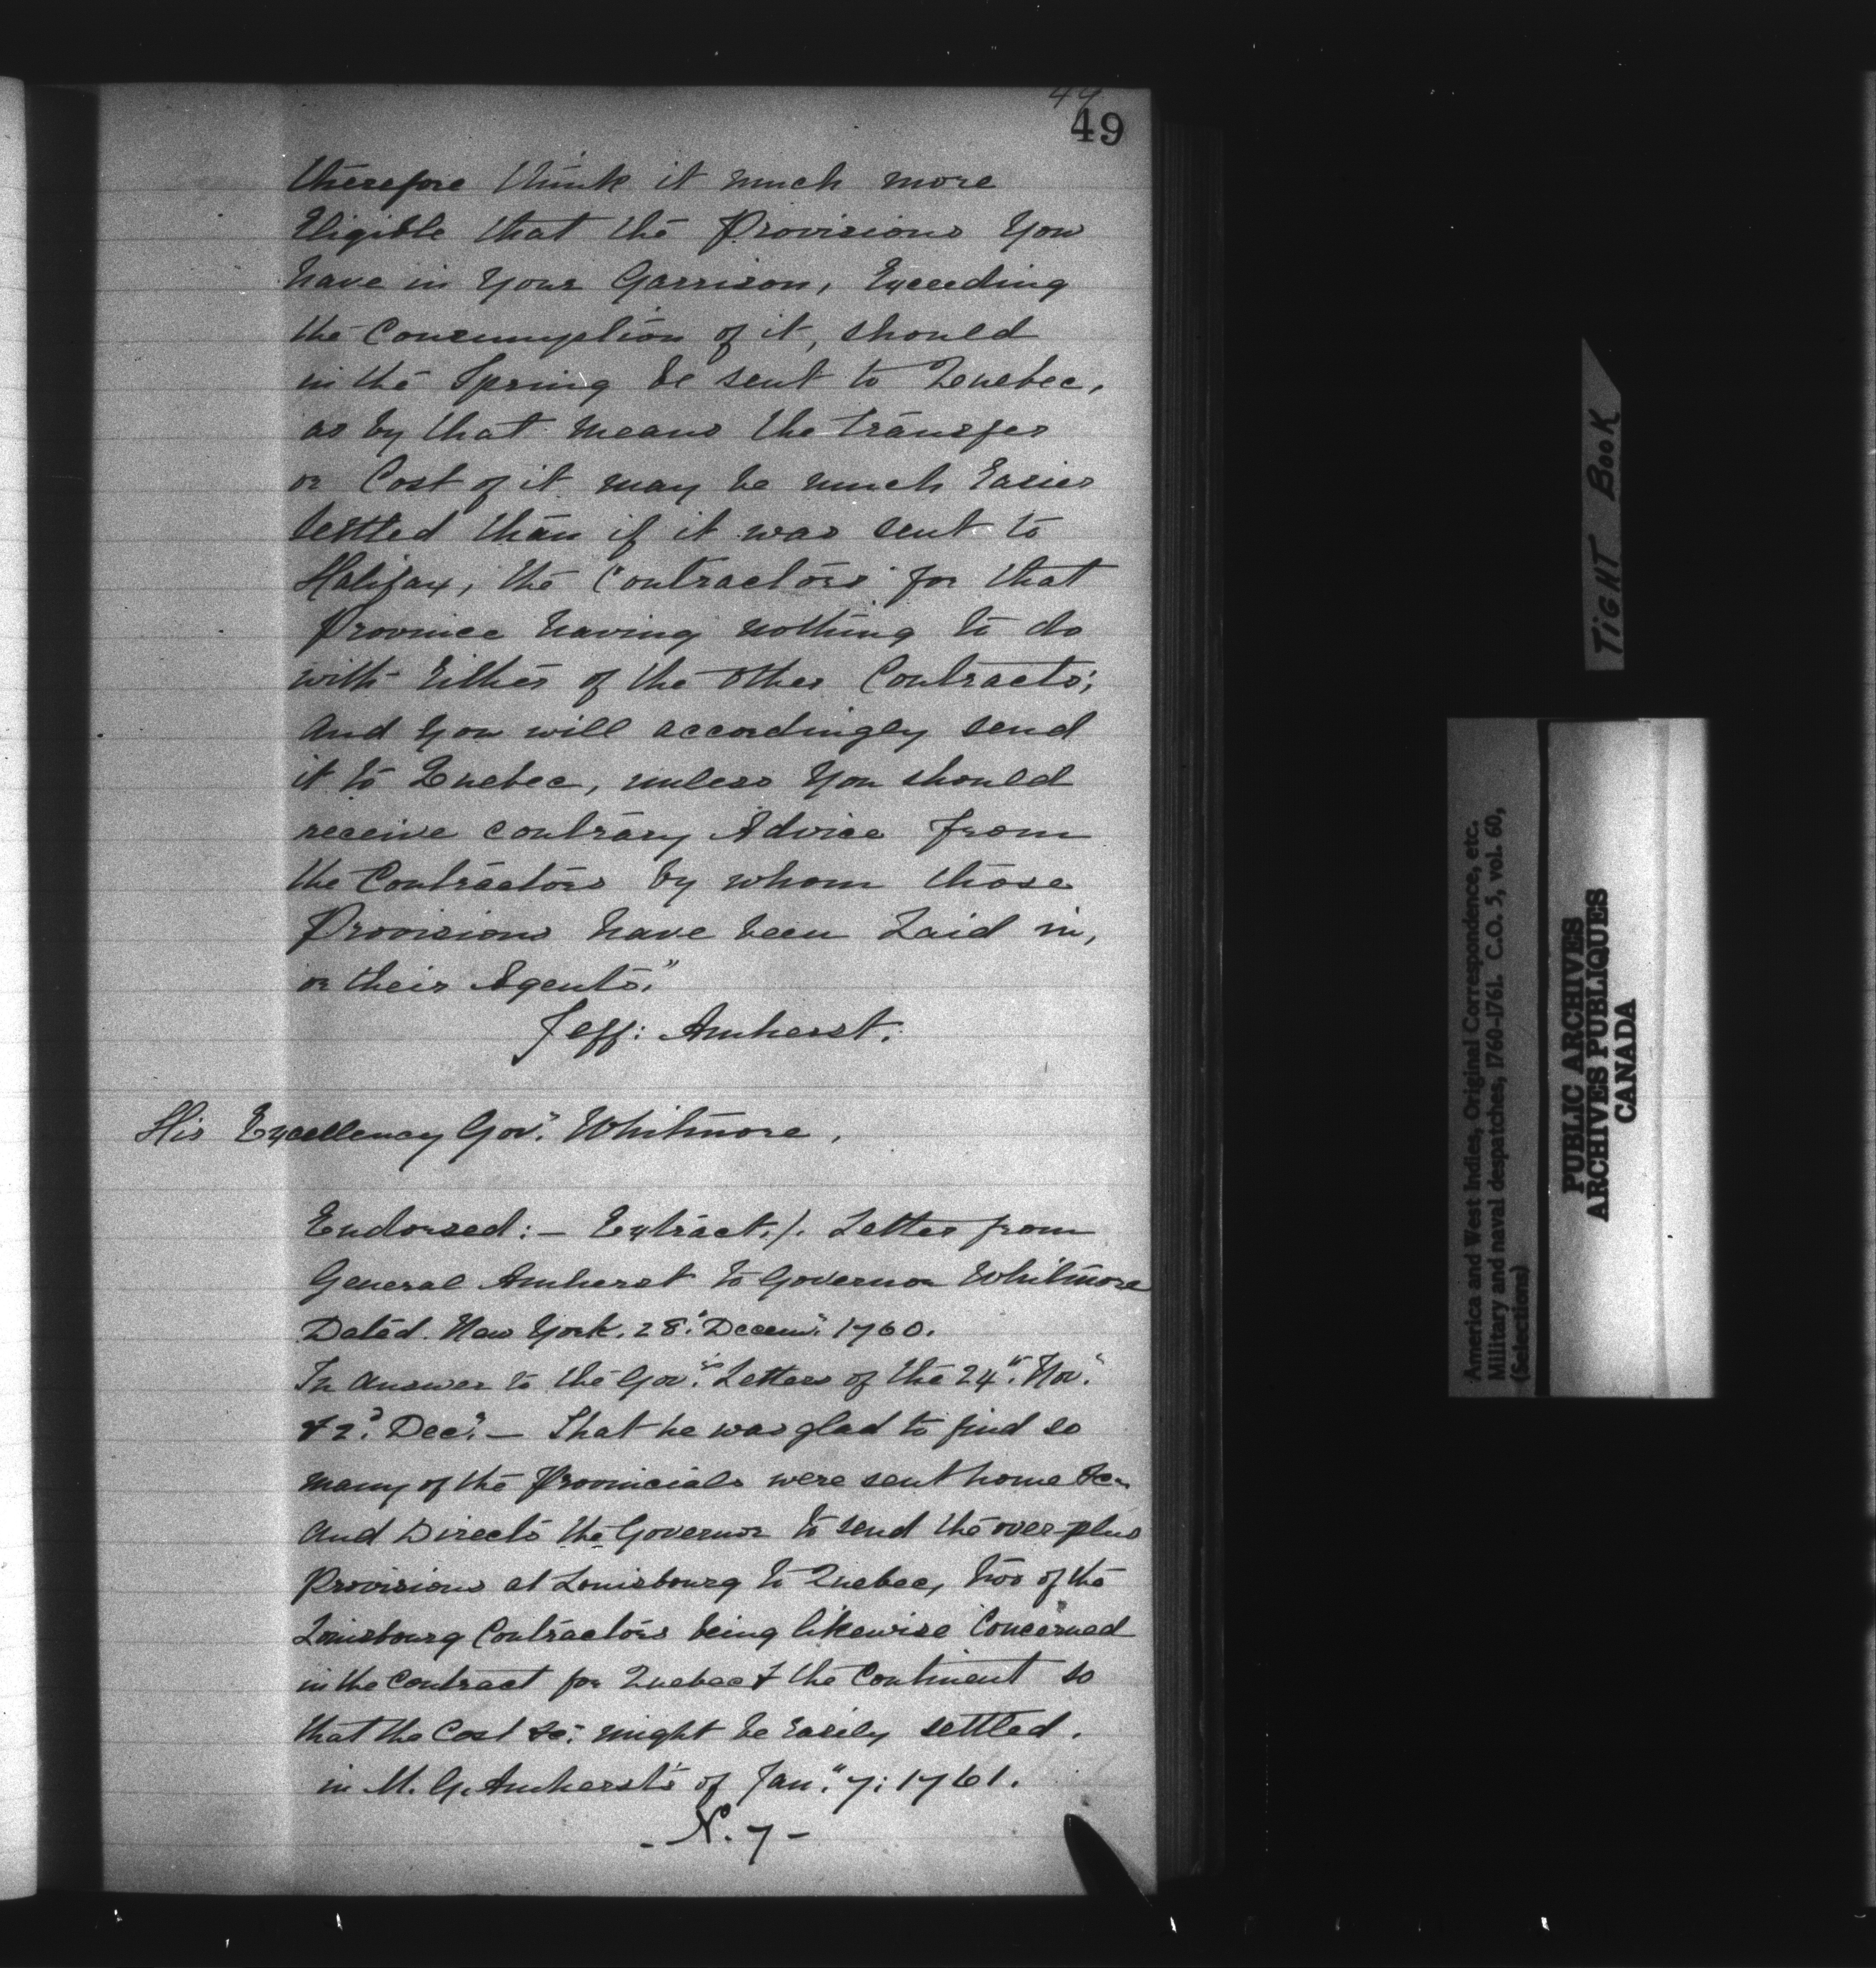 49
49
therefore think it much more
Eligible that the Provisions You
have in Your Garrison, Exceeding
the Consumption of it, should
in the Spring be sent to Quebec,
as by that means the transfer
or Cost of it may be much Easier
settled than if it was sent to
Halifax, the Contractors for that
Province having nothing to do
with Either of the other Contracts;
and You will accordingly send
it to Quebec, unless You should
receive contrary Advice from
the Contractors by whom those
Provisions have been Laid in,
or their Agents."
Jeff: Amherst.
His Excellency Gov.r Whitmore.
Endorsed:— Extract./. Letter from
General Amherst to Governor Whitmore
Dated. New York. 28. Decem.r 1760.
In answer to the Gov.rs Letters of the 24.th Nov.r
& 2.d Dec.r — That he was glad to find so
many of the Provincials were sent home &c.
And Directs the Governor to send the over-plus
Provisions at Louisbourg to Quebec, two of the
Louisbourg Contractors being likewise Concerned
in the Contract for Quebec & the Continent so
that the Cost &c: might be easily settled.
in M. G. Amherst's of Jan.y 7: 1761.
- N. 7 -
TIGHT BOOK
America and West Indies, Original Correspondence, etc.
Military and naval despatches, 1760-1761. C.O. 5, vol. 60,
(Selections)
PUBLIC ARCHIVES
ARCHIVES PUBLIQUES
CANADA